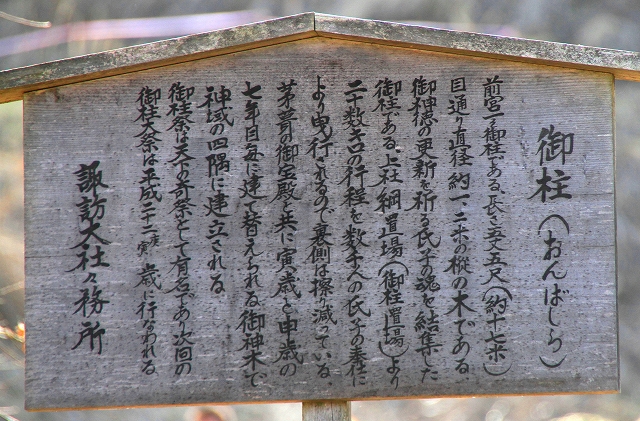 御柱（おんばしら）
前宮一の御柱である、長さ五丈五尺（約十七米）
目通り直径約一、二米の樅の木である、
御神徳の更新を祈る氏子の魂を結集した
御柱である。上社綱置場（御柱置場）より
二十数キロの行程を数千人の氏子の奉仕に
より曳行されるので裏側は擦り減っている、
茅葺の御宝殿と共に寅歳と申歳の
七年目毎に建て替えられる御神木で
神域の四隅に建立される。
御柱祭は天下の奇祭として有名であり次回の
御柱大祭は平成二十二年寅歳に行なわれる、
諏訪大社々務所